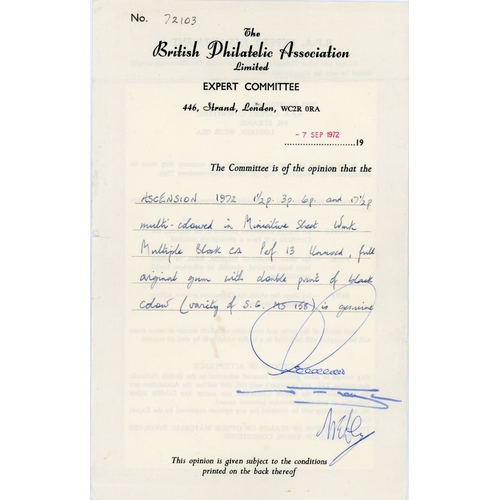 No. 72103
The
British Philatelic Association
Limited
EXPERT COMMITTEE
446, Strand, London, WC2R 0RA
- 7 SEP 1972
19
The Committee is of the opinion that the
ASCENSION 1972 1½p. 3p. 6p. and 17½p
multi-coloured in Miniature Sheet Wmk
Multiple Block CA Perf 13 Unused, full
original gum with double print of black
colour (variety of S.G. MS 158) is genuine
This opinion is given subject to the conditions
printed on the back thereof